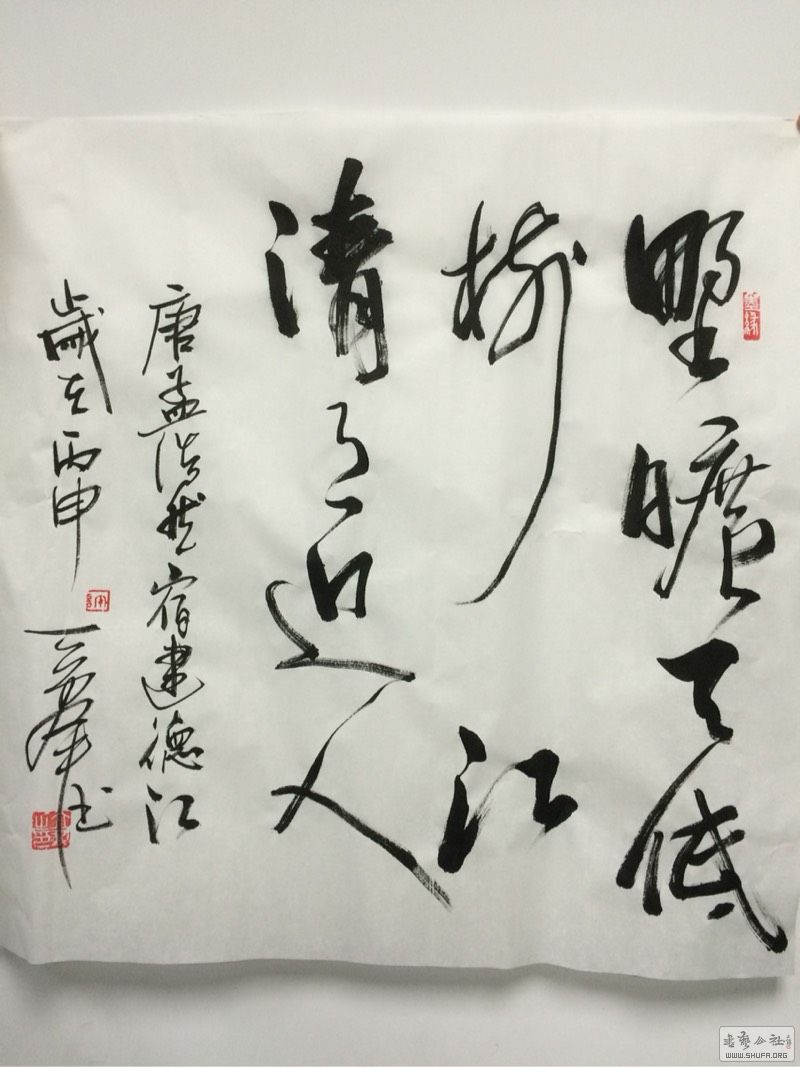 野曠天低
樹江
清月近人
唐孟浩然宿建德江
歲在丙申
書
書藝公社
WWW.SHUFA.ORG